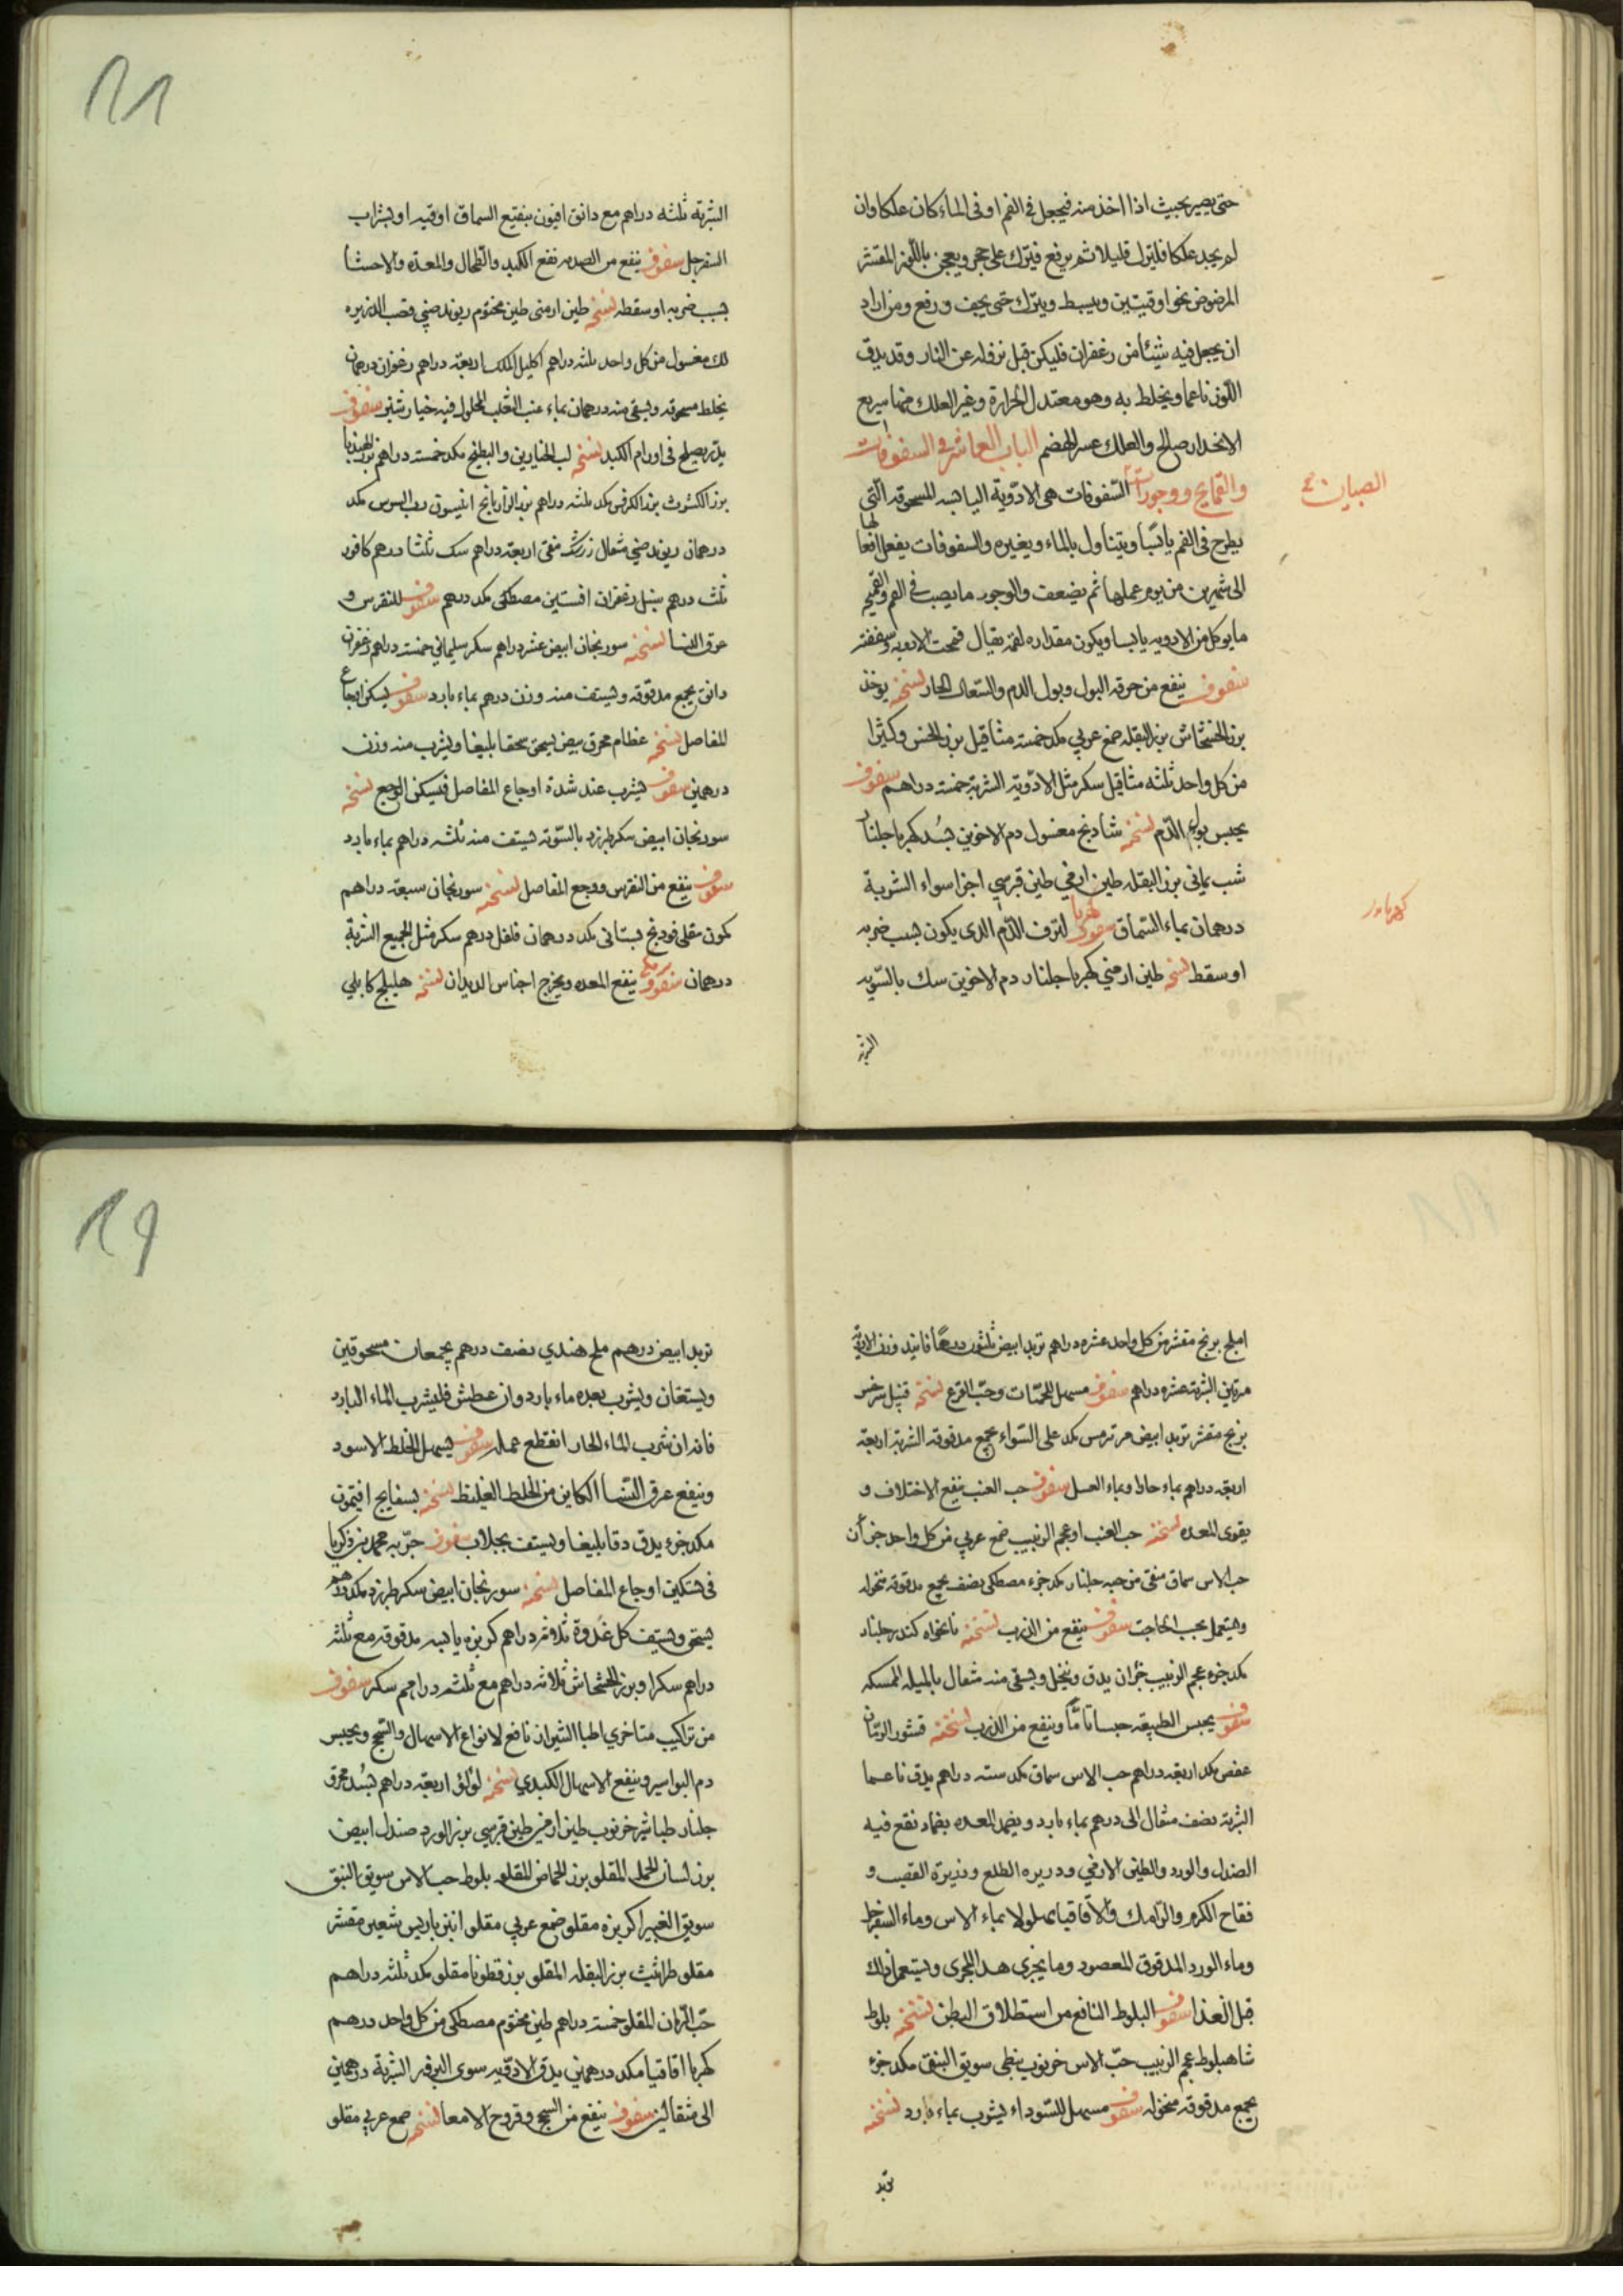 حتى يصير بحيث اذا اخذ منه فيجعل في الفم او في الماء كان علكا وان
لم يجد علكا فليترك قليلا ثم يرفع فيترك على حجر ويعجن باللوز المقشر
المرضوض نحوا وقيتين ويبسط ويترك حتى يجف ورفع ومن اراد
ان يجعل فيه شيئا من زعفران فليكن قبل نزوله عن النار وقد يدق
اللوز ناعما ويخلط به وهو معتدل الحرارة وغير العلك منها سريع
الانحدار صالح والعلك عسر الهضم الباب العاشر في السفوفات
والقمايح ووجورات السفوفات هى الادوية اليابسه المسحوقه التى
الصبيان
يطرح في الفم يابسا ويتناول بالماء وبغيره والسفوفات يفعل افعالها
الى شهرين من يوم عملها ثم يضعف والوجور ما يصب في الفم والقميحه
ما يوكل من الادويه يابسا ويكون مقداره لقمة يقال قمحت الادويه وسففته
سفوف ينفع من حرقه البول وبول الدم والسعال الحار نسخته يوخذ
بزر الخشخاش بزر البقله صمغ عربي مكد خمسة مثاقيل بزر الخس وكثيرا
من كل واحد ثلثه مثاقيل سكر مثل الادوية الشربة خمسة دراهم سفوف
يحبس بول الدم نسخته شادنج مغسول دم الاخوين بسد كهربا جلنار
شب يماني بزر البقله طين ارمني طين قبرسي اجزا سواء الشربة
درهمان بماء السماق سفوف كهربا لنزف الدم الذى يكون بسبب ضربه
او سقط نسخه طين ارمني كهربا جلنار دم الاخوين سك بالسويه
الشربة
11
الشربة ثلثه دراهم مع دانق افيون بنقيع السماق اوقيه او بشراب
السفرجل سفوف ينفع من الصدمه نفع الكبد والطحال والمعده والاحشا
بسبب ضربه او سقطه نسخته طين ارمنى طين مختوم ريوند صيني قصب الذريره
لك مغسول من كل واحد ثلثه دراهم اكليل الملك اربعة دراهم زعفران درهمان
يخلط مسحوقه ويسقى منه درهمان بماء عنب الثعلب المحلول فيه خيارشنبر سفوف
يصلح في اورام الكبد نسخته لب الخيارين والبطيخ مكد خمسة دراهم بزر الهندبا
بزر الكشوث بزر الكرفس مكد ثلثه دراهم بزر الرازيانج انيسون رب السوس مكد
درهمان ريوند صيني مثقال زرشك منقى اربعة دراهم سك ثلثا درهم كافور
ثلث درهم سنبل زعفران افسنتين مصطكى مكد درهم سفوف للنقرس و
عرق النسا نسخته سورنجان ابيض عشر دراهم سكر سليماني خمسة دراهم زعفران
دانق يجمع مدقوقه ويستف منه وزن درهم بماء بارد سفوف يسكن اوجاع
المفاصل نسخته عظام محرق بيض يسحق سحقا بليغا ويشرب منه وزن
درهمين سفوف يشرب عند شدة اوجاع المفاصل فيسكن الوجع نسخه
سورنجان ابيض سكر طبرزد بالسويه يستف منه ثلثه دراهم بماء بارد
سفوف ينفع من النقرس ووجع المفاصل نسخته سورنجان سبعة دراهم
كمون مقلى فودنج بستانى مكد درهمان فلفل درهم سكر مثل الجميع الشربة
درهمان سفوف ينفع المعده ويخرج اجناس الديدان نسخته هليلج كابلي
املج برنج مقشر من كل واحد عشره دراهم تربد ابيض ثلثون درهما فانيد وزن الادوية
مرتين الشربة عشره دراهم سفوف مسهل للحيات وحب القرع نسخته قنبيل سرخس
برنج مقشر تربد ابيض مر ترمس مكد على السواء يجمع مدقوقه الشربة اربعة
اربعة دراهم بماء حار او بماء العسل سفوف حب العنب ينفع الاختلاف و
يقوى المعده نسخته حب العنب او عجم الزبيب صمغ عربي من كل واحد جزءان
حب الاس سماق منقى من حبه جلنار مكد جزء مصطكى نصف يجمع مدقوقه منخوله
ويستعمل بحسب الحاجة سفوف ينفع من الذرب نسخته نانخواه كندر جلنار
مكد جزء عجم الزبيب جزءان يدق وينخل ويسقى منه مثقال بالميبه الممسكه
سفوف يحبس الطبيعه حبسا تاما وينفع من الذرب نسخته قشور الرمان
عفص مكد اربعة دراهم حب الاس سماق مكد سته دراهم يدق ناعما
الشربة نصف مثقال الى درهم بماء بارد ويضمد المعده بضماد نقع فيه
الصندل والورد والطين الارمني وذريره الطلع وذريرة القصب و
فقاح الكرم والرامك والاقاقيا محلولا بماء الاس وماء السفرجل
وماء الورد المدقوق المعصور وما يجري هذا المجرى ويستعمل ذلك
قبل الغذا سفوف البلوط النافع من استطلاق البطن نسخته بلوط
شاهبلوط عجم الزبيب حب الاس خرنوب نبطي سويق النبق مكد جزء
يجمع مدقوقه منخوله سفوف مسهل للسوداء يشرب بماء بارد نسخته
تربد
19
تربد ابيض درهم ملح هندي نصف درهم يجمعان مسحوقين
ويستفان ويشرب بعده ماء بارد وان عطش فليشرب الماء البارد
فانه ان شرب الماء الحار انقطع عمله سفوف يسهل الخلط الاسود
وينفع عرق النسا الكاين من الخلط الغليظ نسخته بسفايج افتيمون
مكد جزء يدق دقا بليغا ويستف بجلاب سفوف جربه محمد بن زكريا
في تسكين اوجاع المفاصل نسخته سورنجان ابيض سكر طبرزد مكد درهم
يسحق ويستف كل غدوة ثلاثة دراهم كزبره يابسه مدقوقه مع ثلثه
دراهم سكر او بزر الخشخاش ثلاثه دراهم مع ثلثه دراهم سكر سفوف
من تراكيب متاخري اطبا الشيراز نافع لانواع الاسهال والسحج ويحبس
دم البواسير وينفع الاسهال الكبدي نسخته لؤلؤ اربعة دراهم بسد محرق
جلنار طباشير خرنوب طين ارمني طين قبرسي بزر الورد صندل ابيض
بزر لسان الحمل المقلو بزر الحماض المقلو بلوط حب الاس سويق النبق
سويق الغبيرا كزبره مقلو صمغ عربي مقلو انبرباريس شعير مقشر
مقلو طراثيث بزر البقله المقلو بزر قطونا مقلو مكد ثلثه دراهم
حب الرمان المقلو خمسة دراهم طين مختوم مصطكى من كل واحد درهم
كهربا اقاقيا مكد درهمين يدق الادويه سوى البزور الشربة درهمين
الى مثقالين سفوف ينفع من السحج وقروح الامعا نسخته صمغ عربي مقلو